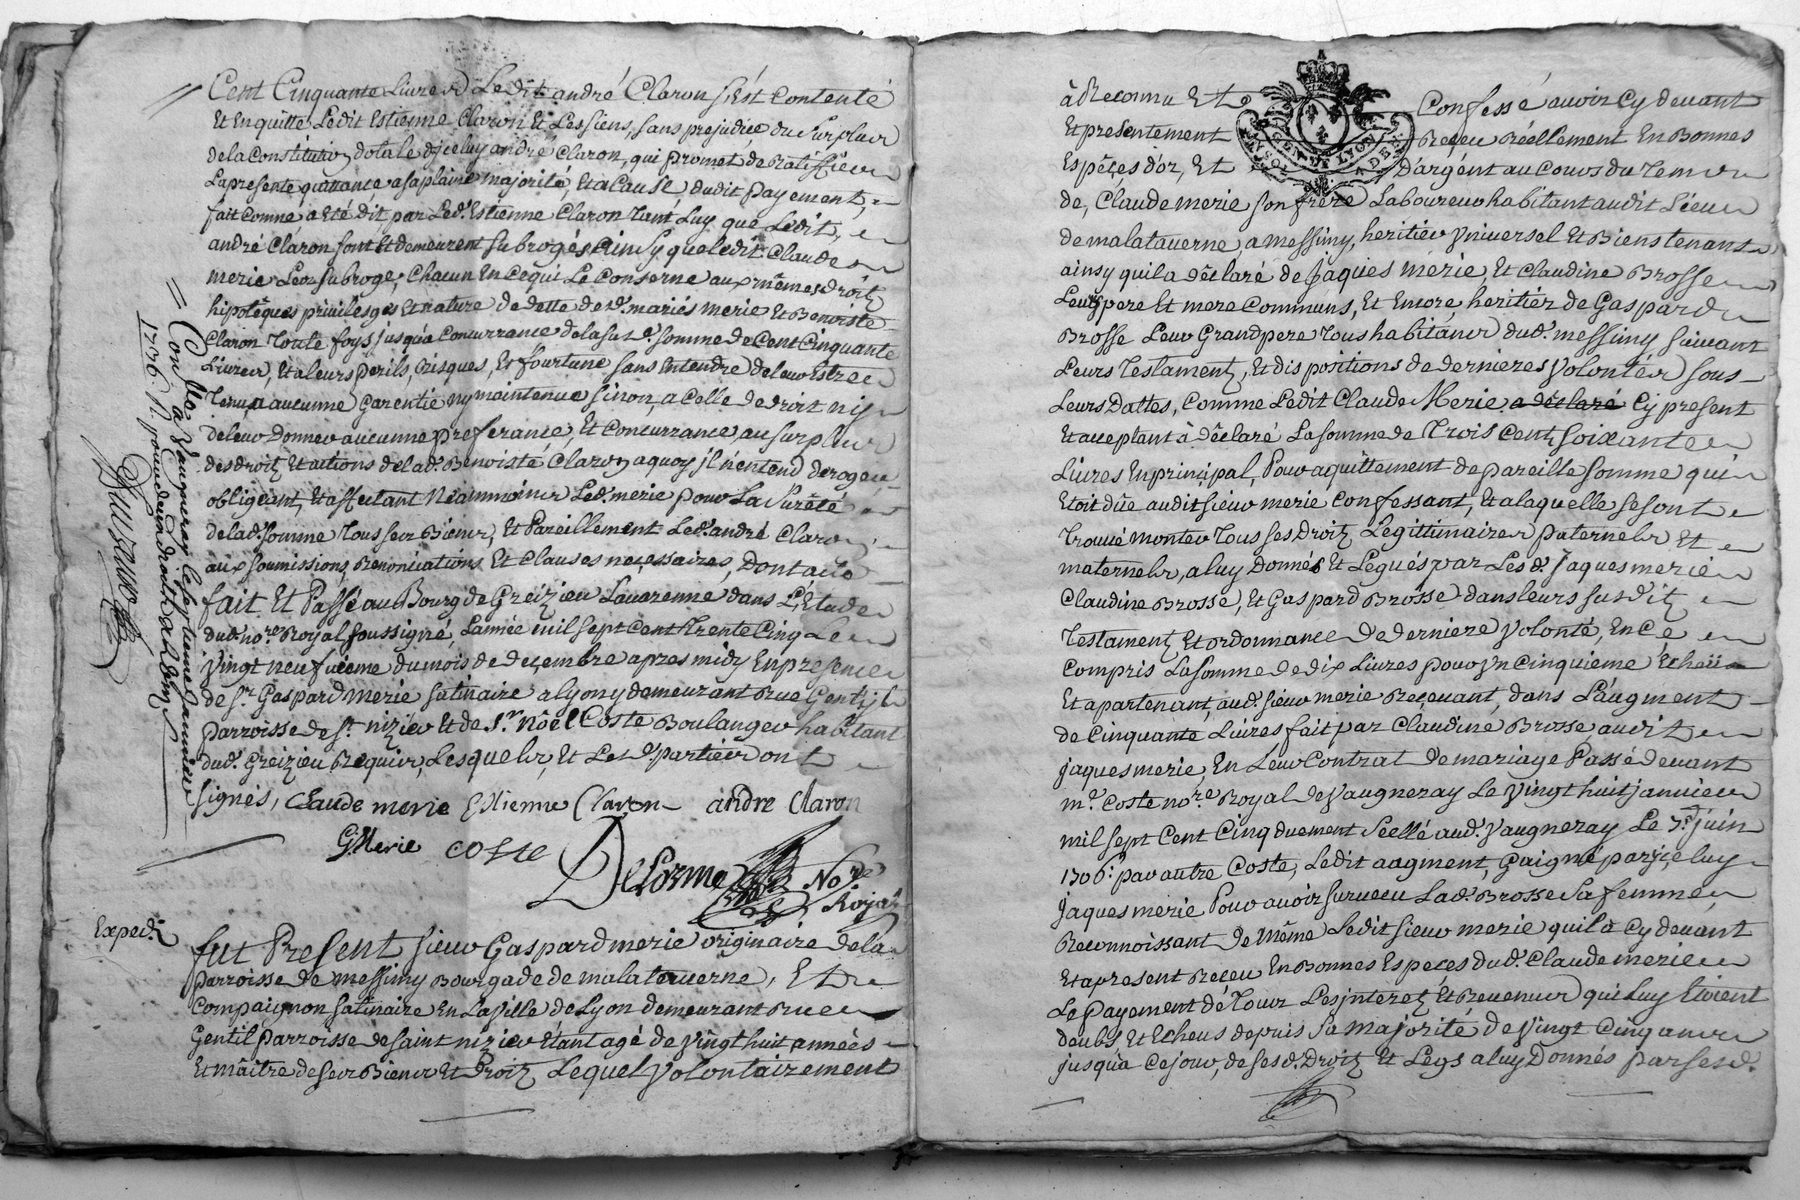 Cent Cinquante Livres Ledit andré Claron s'Est Contenté
Et En quitte Ledit Estienne Claron Et Les siens, sans prejudice du surplus
de la Constitution dotale diceluy andré Claron, qui promet de Ratiffier
La presente quittance a sa plaine majorité, Et a Cause dudit payement,
fait Comme a Eté dit par Led. Estienne Claron Tant Luy que Ledit,
andré Claron sont Et demeurent subrogés ainsy que ledit Claude
merie Les subroge, Chacun En ce qui Le Conserne aux mêmes droitz
hipotêques privileges Et nature de dette desd. mariés merie Et Benoiste
Claron Toute foys jusqu'a Concurrance de la susd. somme de Cent Cinquante
Livres, Et a leurs perils, risques, Et fourtune sans Entendre de leur Estre
Tenu a aucunne Garentie ny maintenue sinon, a Celle de droit ny
de leur Donner aucunne preferance, Et Concurrance au surplus
des droitz Et actions de lad. Benoiste Claron a quoy jl n'entend deroger
obligeant, Et affectant Néammoins Led. merie pour La Sûreté
de lad. somme Tous ses Biens, Et Pareillement Led. andré Claron
aux soumissions, Renonciations, Et Clauses neçessaires, Dont acte
fait Et Passé au Bourg de Greizieu Lavarenne dans L'Etude
dud. no.re Royal soussigné, L'année mil sept Cent Trente Cinq Le
Vingt neufvieme du mois de deçembre apres midy En presence
de S.r Gaspard merie satinaire a lyon y demeurant Rue Gentil
parroisse de S.t nizier Et de S.r Nôel Coste Boulanger habitant
dud. Greizieu Requis, Lesquels, Et Lesd. parties ont
signés, Claude merie Estienne Claron andre Claron
G Merie COSTE
Delorme No.re
Royal
Con.llé à Vaugneray le septieme Janvier
1736. R.
Exped.
fut Present sieur Gaspard merie originaire de la
Parroisse de Messimy Bourgade de malataverne, Et
Compaignon satinaire En La Ville de Lyon demeurant Rue
Gentil Parroisse de saint nizier Etant agé de Vingt huit années
Et mâitre de ses Biens Et Droitz Lequel Volontairement
à Reconnu Et Confessé avoir Cy devant
Et presentement Reçeu Réellement En Bonnes
Espêçes d'or, Et D'argent au Cours du Tems
de, Claude merie son frère Laboureur habitant audit Lieu
de malataverne a messimy, heritier Vniversel Et Biens tenant
ainsy quil a déclaré de Jaques merie, Et Claudine Brosse
Leurs pere Et mere Communs, Et Encore heritier de Gaspard
Brosse Leur Grandpere Tous habitans dud. messimy suivant
Leurs Testamentz, Et dispositions de dernieres Volontés sous
Leurs Dattes, Comme Ledit Claude Merie a déclaré Cy present
Et acceptant à déclaré La somme de Trois Cent soixante
Livres En principal, Pour aquittement de pareille somme qui
Etoit dûe audit sieur merie Confessant, Et a laquelle se sont
Trouvé monter Tous ses Droitz Legittimaires paternels Et
maternels, a luy Donnés Et Legués par Lesd. Jaques merie
Claudine Brosse, Et Gaspard Brosse dans leurs susditz
Testamentz Et ordonnance de derniere Volonté, En Ce
Compris La somme de dix Livres pour Vn Cinquieme Echeü
Et apartenant, aud. sieur merie Reçevant, dans L'augment
de Cinquante Livres fait par Claudine Brosse audit
Jaques merie, En Leur Contrat de mariage Passé devant
m.e Coste no.re Royal de Vaugneray Le Vingt huit janvier
mil sept Cent Cinq duement Scellé aud. Vaugneray Le 7.e juin
1706. par autre Coste, Ledit augment, Gaigné par içeluy
Jaques merie Pour avoir survecu Lad. Brosse sa femme,
Reconnoissant de même Ledit sieur merie quil à Cy devant
Et a present Reçeu En Bonnes Espeçes dud. Claude merie
Le Payement de Tous Les jnteretz Et Revenus qui Luy Etoient
deubs Et Echeus depuis sa majorité de Vingt Cinq ans
jusqu'a Ce jour, de sesd. Droitz Et Legs a luy Donnés par sesd.